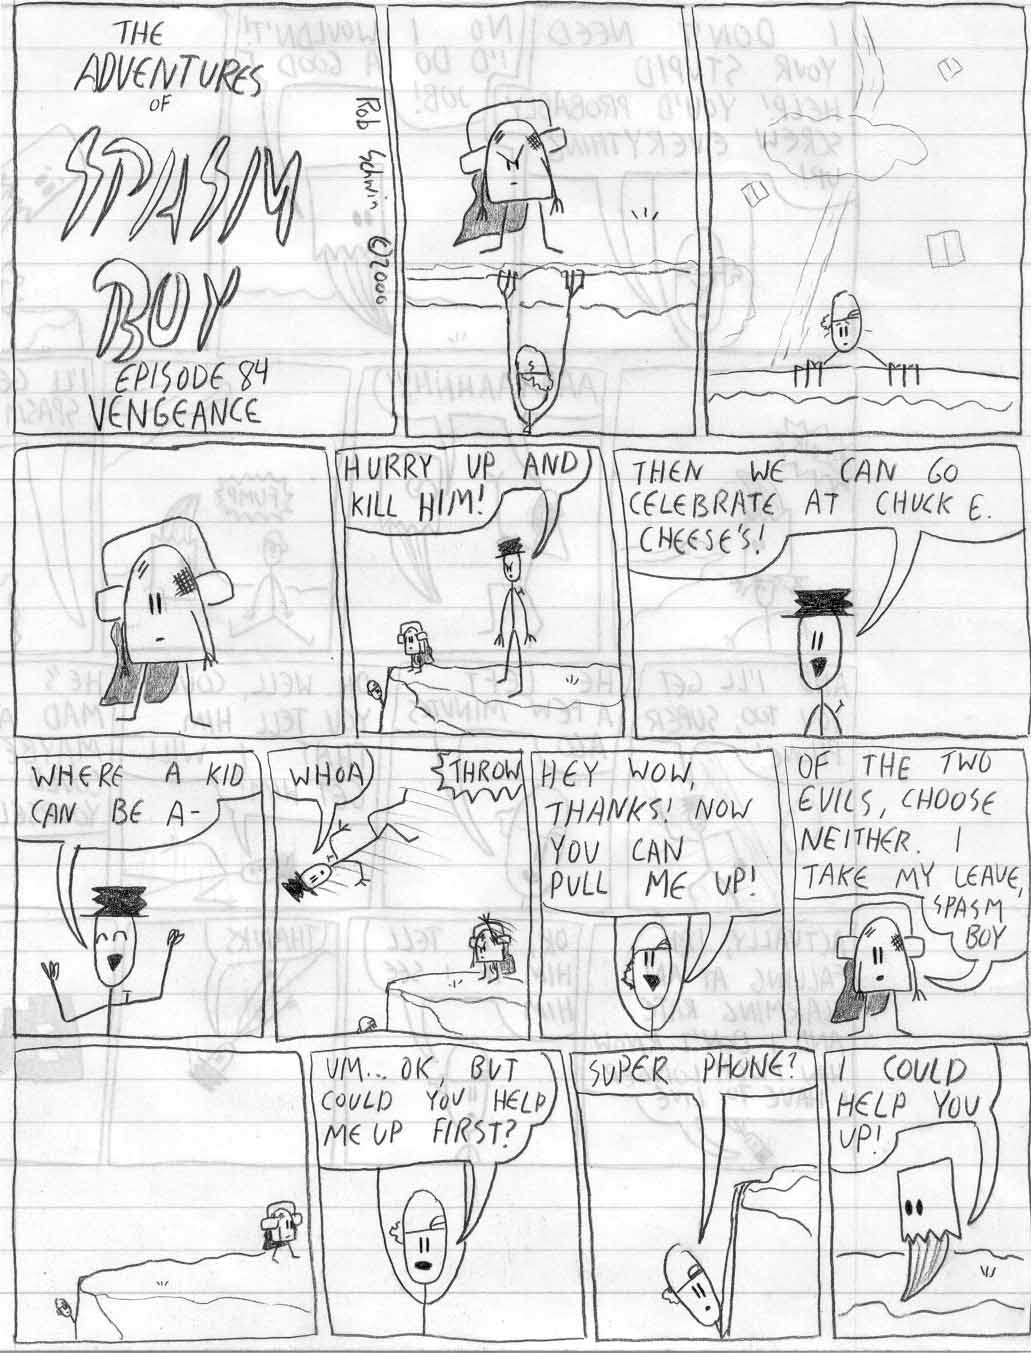 THE
ADVENTURES
OF
SPASM
BOY
EPISODE 84
VENGEANCE
Rob Schwin ©2000
HURRY UP AND
KILL HIM!
THEN WE CAN GO
CELEBRATE AT CHUCK E.
CHEESE'S!
WHERE A KID
CAN BE A-
WHOA
THROW
HEY WOW,
THANKS! NOW
YOU CAN
PULL ME UP!
OF THE TWO
EVILS, CHOOSE
NEITHER. I
TAKE MY LEAVE,
SPASM
BOY
UM... OK, BUT
COULD YOU HELP
ME UP FIRST?
SUPER PHONE?
I COULD
HELP YOU
UP!